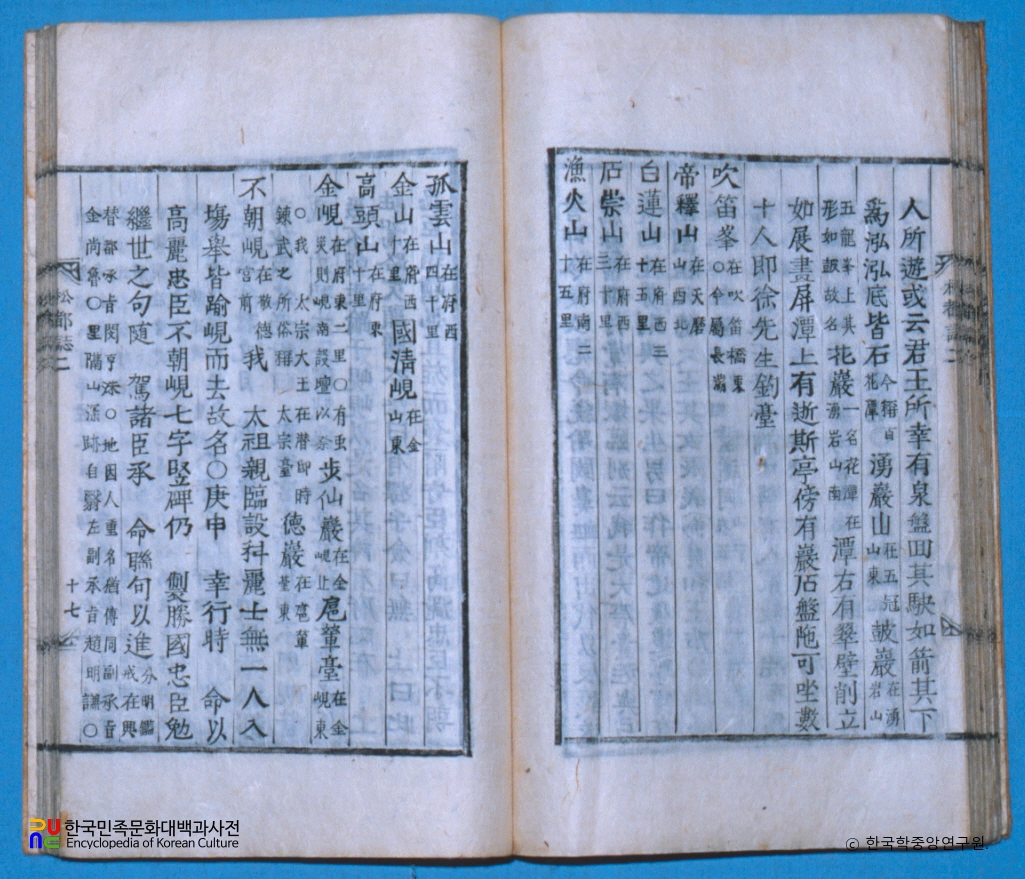 人所遊或云君王所幸有泉盤回其駛如箭其下
爲泓泓底皆石今稱百花潭○湧巖山在五冠山東皷巖在湧岩山
五龍峯上其形如皷故名花巖一名花潭在湧岩山南潭右有翠壁削立
如展畫屛潭上有逝斯亭傍有巖石盤陁可坐數
十人即徐先生釣臺
吹笛峯在吹笛橋東○今屬長湍
帝釋山在天磨山西北
白蓮山在府西五十里
石崇山在府西三十里
漁火山在府南二十五里
孤雲山在府西四十里
金山在府西十里國清峴在金山東
高頭山在府東十里
金峴在府東二里○有虫災則峴南設壇以祭步仙巖在金峴上扈輦臺在金峴東
○我 太宗大王在潛邸時鍊武之所俗稱 太宗臺德巖在扈輦臺東
不朝峴在敬德宮前我 太祖親臨設科麗士無一人入
場擧皆踰峴而去故名○庚申 幸行時 命以
高麗忠臣不朝峴七字竪碑仍 製勝國忠臣勉
繼世之句隨 駕諸臣承 命聯句以進分明鑑戒在興
替都承旨閔亨洙○地因人重名猶傳同副承旨
金尚魯○里隔山深跡自翳左副承旨趙明謙○
松都誌二
十七
한국민족문화대백과사전
Encyclopedia of Korean Culture
© 한국학중앙연구원